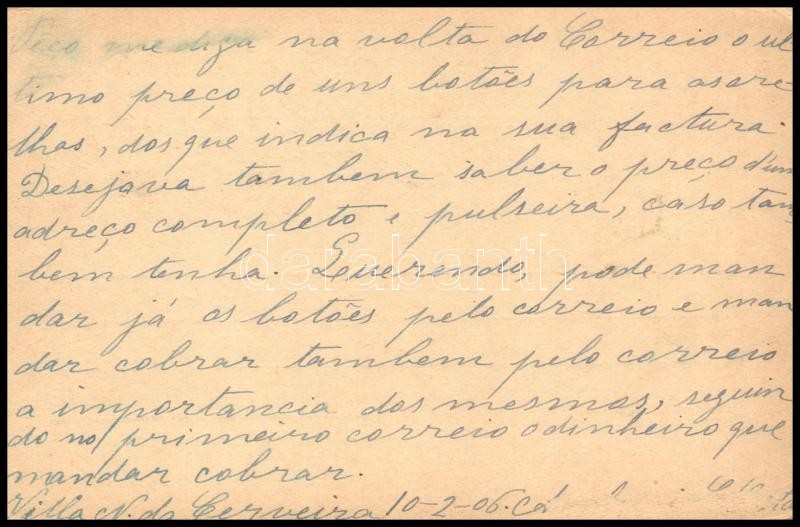 Peço me diga na volta do Correio o ul
timo preço de uns botões para as ore-
lhas, dos que indica na sua factura.
Desejava tambem saber o preço d'um
adreço completo e pulseira, caso tam-
bem tenha. Querendo, pode man
darabanth
dar já os botões pelo correio e man
dar cobrar tambem pelo correio
a importancia dos mesmos, seguin
do no primeiro correio o dinheiro que
mandar cobrar.
Villa N. da Cerveira 10-2-06.